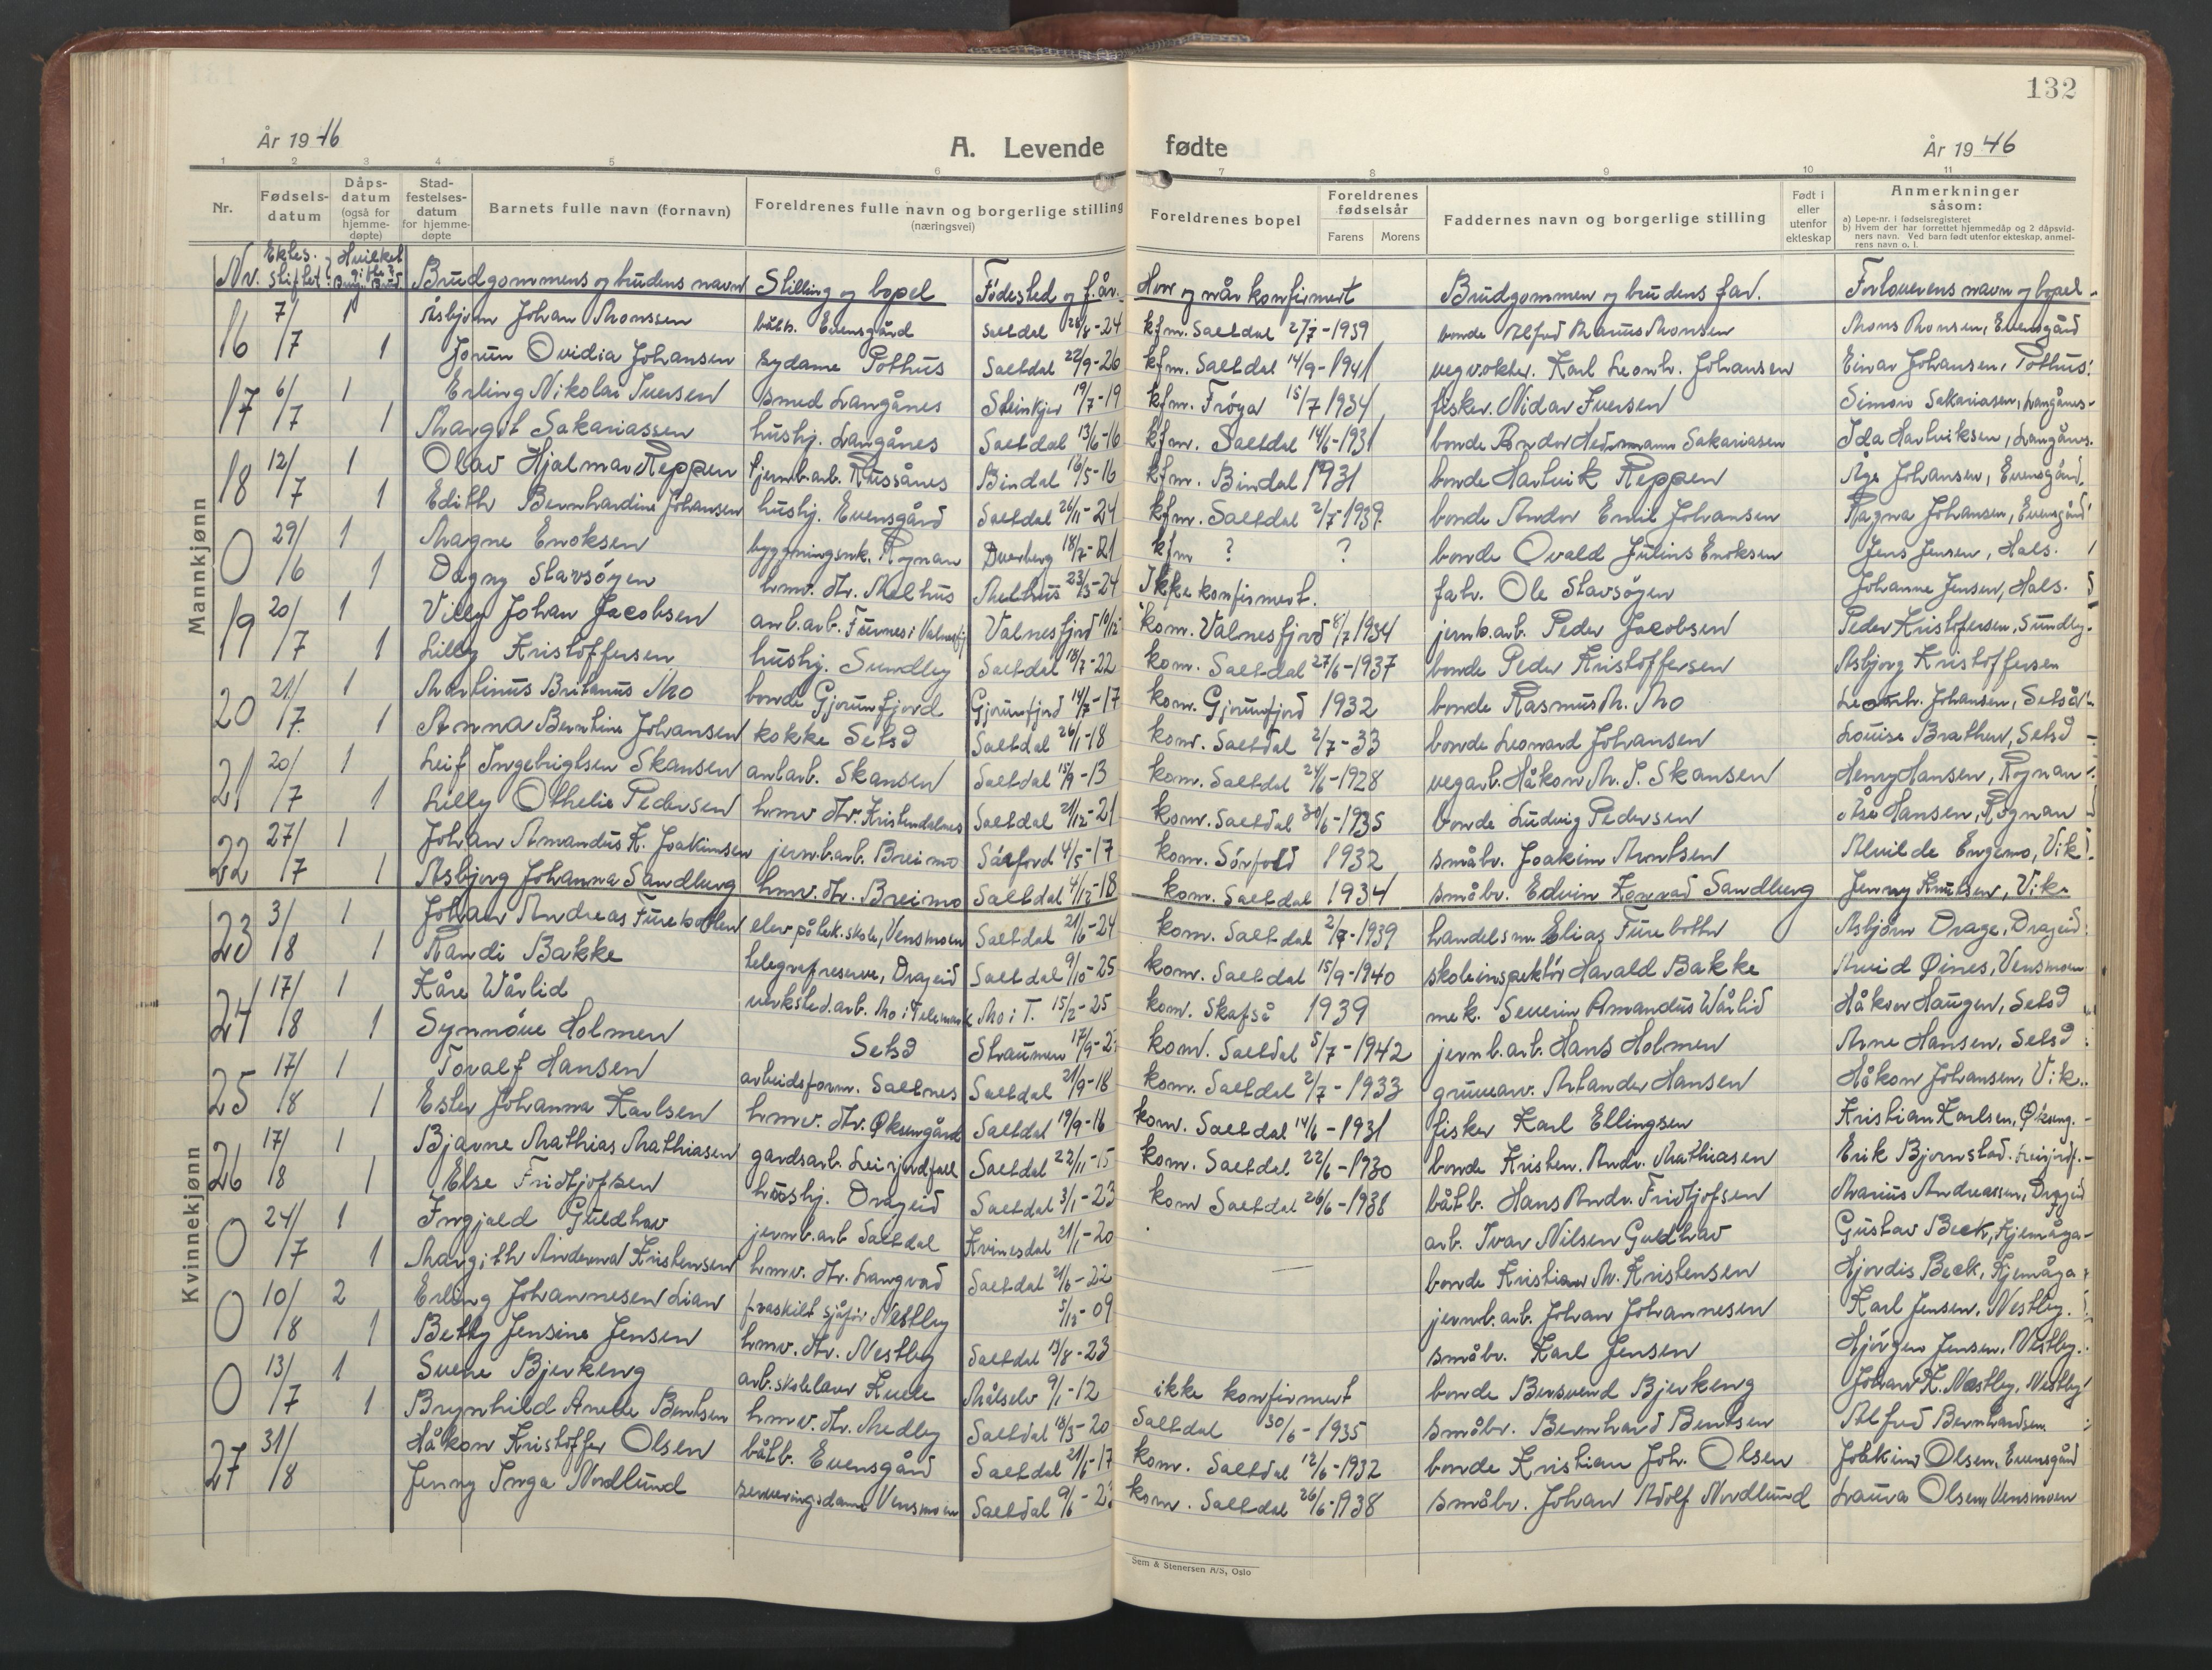 132
År 19 46
A. Levende fødte
År 19 46
1 2 3 4 5 6 7 8 9 10 11
Nr.
Fødsels-datum
Dåps-datum (også for hjemme-døpte)
Stad-festelses-datum for hjemme-døpte
Barnets fulle navn (fornavn)
Foreldrenes fulle navn og borgerlige stilling (næringsvei)
Foreldrenes bopel
Foreldrenes fødselsår
Farens Morens
Faddernes navn og borgerlige stilling
Født i eller utenfor ekteskap
Anmerkninger såsom:
a) Løpe-nr. i fødselsregisteret
b) Hvem der har forrettet hjemmedåp og 2 dåpsvid-
ners navn. Ved barn født utenfor ekteskap, anmel-
rens navn o. l.
Nr. Ektes. stiftet Hvilket Brudgommens og brudens navn Stilling og bopel Fødested og f.år. Hvor og når konfirmert Brudgommen og brudens far. Forloverens navn og bopel
16 7/7 1 Asbjørn Johan Monssen båtb. Evensgård Saltdal 28/8-24 kfm. Saltdal 2/7-1939 bonde Alfred Marius Monsen Mons Monsen, Evensgård
1 Jorun Ovidia Johansen sydame Pothus Saltdal 22/9-26 kfm. Saltdal 14/9-1941 vegvokter. Karl Leonh. Johansen Einar Johansen, Pothus
17 6/7 1 Erling Nikolai Iversen smed Langånes Steinkjer 19/7-19 kfm. Frøya 15/7 1934 fisker. Nidar Iversen Simon Sakariasen, Langånes
1 Margit Sakariassen hushj. Langånes Saltdal 13/6-16 kfm. Saltdal 14/6-1931 bonde Andor Hermann Sakariasen Ida Hartviksen, Langånes.
18 12/7 1 Olav Hjalmar Reppen jernb.arb. Russånes Bindal 16/5-16 kfm. Bindal 1931 bonde Hartvik Reppen Åge Johansen, Evensgård
1 Edith Bernhardine Johansen hushj. Evensgård Saltdal 26/11-24 kfm. Saltdal 2/7-1939. bonde Andor Emil Johansen Ragna Johansen, Evensgård
0 29/6 1 Magne Enoksen bygningssnk. Rognan Dverberg 18/7-21 kfm ? ? bonde Ovald Julius Enoksen Jens Jensen, Hals.
1 Dagny Stavsøyen hmv. dtr. Melhus Melhus 23/3-24 Ikke konfirmert. fabr. Ole Stavsøyen Johanne Jensen, Hals.
19 20/7 1 Villy Johan Jacobsen anl.arb. Furnes i Valnesfj Valnesfjord 19/12 kom. Valnesfjord 8/7 1934 jernb.arb. Peder Jacobsen Peder Kristofersen, Sundby
1 Lilly Kristoffersen hushj. Sundby Saltdal 18/7-22 kom. Saltdal 27/6-1937 bonde Peder Kristoffersen Asbjørg Kristoffersen
20 21/7 1 Martinus Britanus Mo bonde Gjerumfjord Gjerumfjord 14/7-17 kom. Gjerumfjord 1932 bonde Rasmus M. Mo Leonh. Johansen, Setså
1 Anna Berntine Johansen kokke Setså Saltdal 26/1-18 kom. Saltdal 2/7-33 bonde Leonard Johansen Louise Brathen, Setså
21 20/7 1 Leif Ingebrigtsen Skansen anl.arb. Skansen Saltdal 15/9-13 kom. Saltdal 24/6-1928 vegarb. Håkon M. I. Skansen Henry Hansen, Rognan
1 Lilly Othelie Pedersen hmv. dtr. Kristendalnes Saltdal 21/12-21 kom. Saltdal 30/6-1935 bonde Ludvig Pedersen Åse Hansen, Rognan
22 27/7 1 Johan Amandus K. Joakimsen jernb.arb. Breimo Sørfold 4/5-17 kom. Sørfold 1932 småbr. Joakim Arntsen Alvilde Engemo, Vik
1 Asbjørg Johanna Sandberg hmv. dtr. Breimo Saltdal 4/12-18 kom. Saltdal 1934 småbr. Edvin Konrad Sandberg Jenny Knutsen, Vik
23 3/8 1 Johan Andreas Furebotten elev på tek. skole, Vensmoen Saltdal 21/6-24 kom. Saltdal 2/7-1939 handelsm. Elias Furebotten Asbjørn Drage, Drageid
1 Randi Bakke telegrafreserve, Drageid Saltdal 9/10-25 kom. Saltdal 15/9-1940 skoleinspektør Harald Bakke Arvid Øines, Vensmoen
24 17/8 1 Kåre Wårlid verksted.arb. Mo i Telemark Mo i T. 15/2-25 kom. Skafså 1939 mek. Severin Amandus Wårlid Håkon Haugen, Setså
1 Synnøve Holmen Setså Straumen 17/9-2 kom. Saltdal 5/7-1942 jernb.arb. Hans Holmen Arne Hansen, Setså
25 17/8 1 Toralf Hansen arbeidsform. Saltnes Saltdal 21/9-18 kom. Saltdal 2/7-1933 gruvearb. Arlander Hansen Håkon Johansen, Vik.
1 Ester Johanna Karlsen hmv. dtr. Øksengård Saltdal 19/9-16 kom. Saltdal 14/6-1931 fisker Karl Ellingsen Kristian Karlsen, Økseng.
26 17/8 1 Bjarne Mathias Mathiasen gardsarb. Leirjordfall Saltdal 22/11-15 kom. Saltdal 22/6-1930 bonde Kristen. Andr. Mathiasen Erik Bjørnstad. Leirjordf.
1 Else Fridtjofsen hushj. Drageid Saltdal 3/1-23 kom Saltdal 26/6-1938 båtb. Hans Andr. Fridtjofsen Marius Andreassen, Drageid
0 24/7 1 Ingjald Guldhav jernb.arb Saltdal Kvinesdal 21/1-20 arb. Ivar Nilsen Guldhav Gustav Beck, Kjemåga
1 Margith Kristensen hmv. dtr. Langvad Saltdal 21/6-22 bonde Kristian M. Kristensen Hjørdis Beck, Kjemåga
0 10/8 2 Erling Johannesen Lian fraskilt sjåfør Nestby 5/12-09 jernb.arb. Johan Johannesen Karl Jensen, Nestby.
1 Betty Jensine Jensen hmv. dtr. Nestby Saltdal 13/8-23 småbr. Karl Jensen Hjørgen Jensen, Nestby.
0 13/7 1 Sverre Bjerkeng arb.skolelærer Målselv 9/1-12 ikke konfirmert bonde Bersvend Bjerkeng Johan K. Nestby, Nestby
1 Brynhild Anette Bentsen hmv. dtr. Medby Saltdal 18/3-20 Saltdal 30/6-1935 småbr. Bernhard Bentsen Alfred Bernhardsen
27 31/8 Håkon Kristoffer Olsen båtb. Evensgård Saltdal 21/6-17 kom. Saltdal 12/6-1932 bonde Kristian Joh. Olsen Joakim Olsen, Evensgård
Jenny Inga Nordlund serveringsdame Vensmoen Saltdal 9/6-23 kom. Saltdal 26/6-1938 småbr. Johan Adolf Nordlund Laura Olsen, Vensmoen
Mannkjønn
Kvinnekjønn
Sem & Stenersen A/S, Oslo